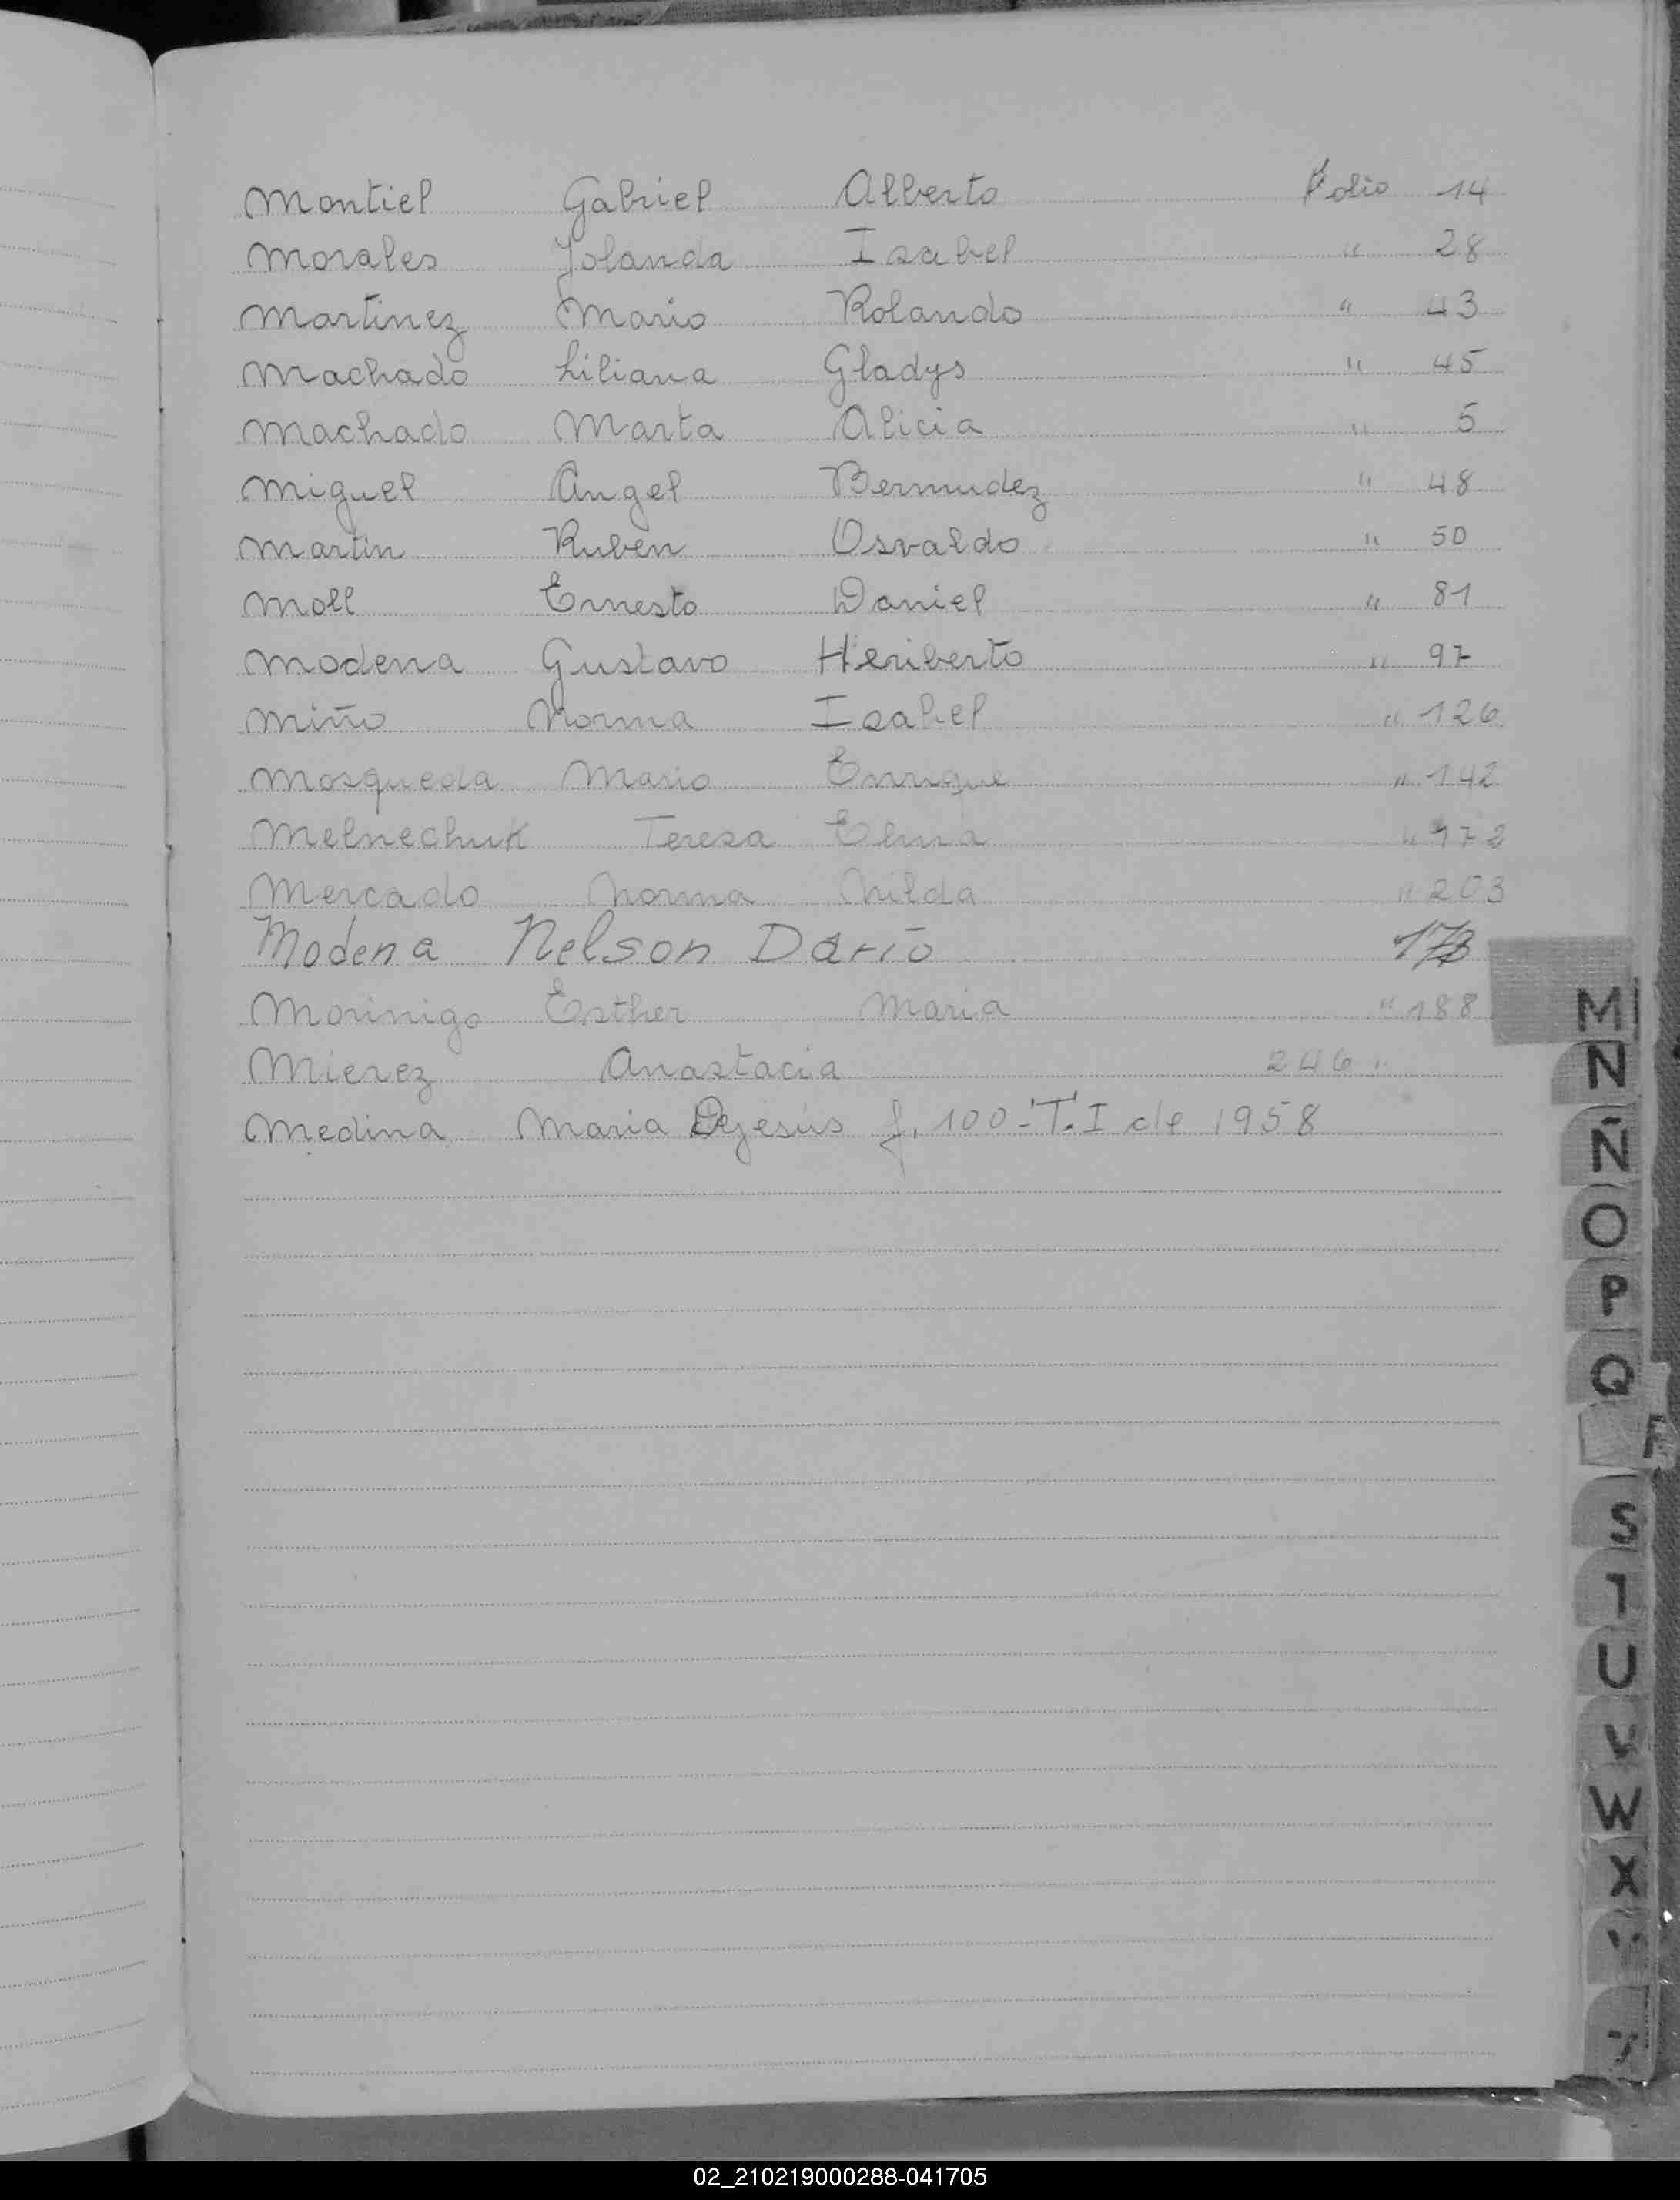 Montiel Gabriel Alberto Folio 14
Morales Yolanda Isabel " 28
Martinez Mario Rolando " 43
Machado Liliana Gladys " 45
Machado Marta Alicia " 5
Miguel Angel Bermudez " 48
Martin Ruben Osvaldo " 50
Moll Ernesto Daniel " 81
Modena Gustavo Heriberto " 97
Miño Norma Isabel " 126
Mosqueda Mario Enrique " 142
Melnechuk Teresa Elma " 172
Mercado Norma Nilda " 203
Modena Nelson Dario 173
Morinigo Esther Maria " 188
Mierez Anastacia 246 "
Medina Maria Dejesús f. 100-T.I de 1958
M
N
Ñ
O
P
Q
R
S
T
U
V
W
X
02_210219000288-041705